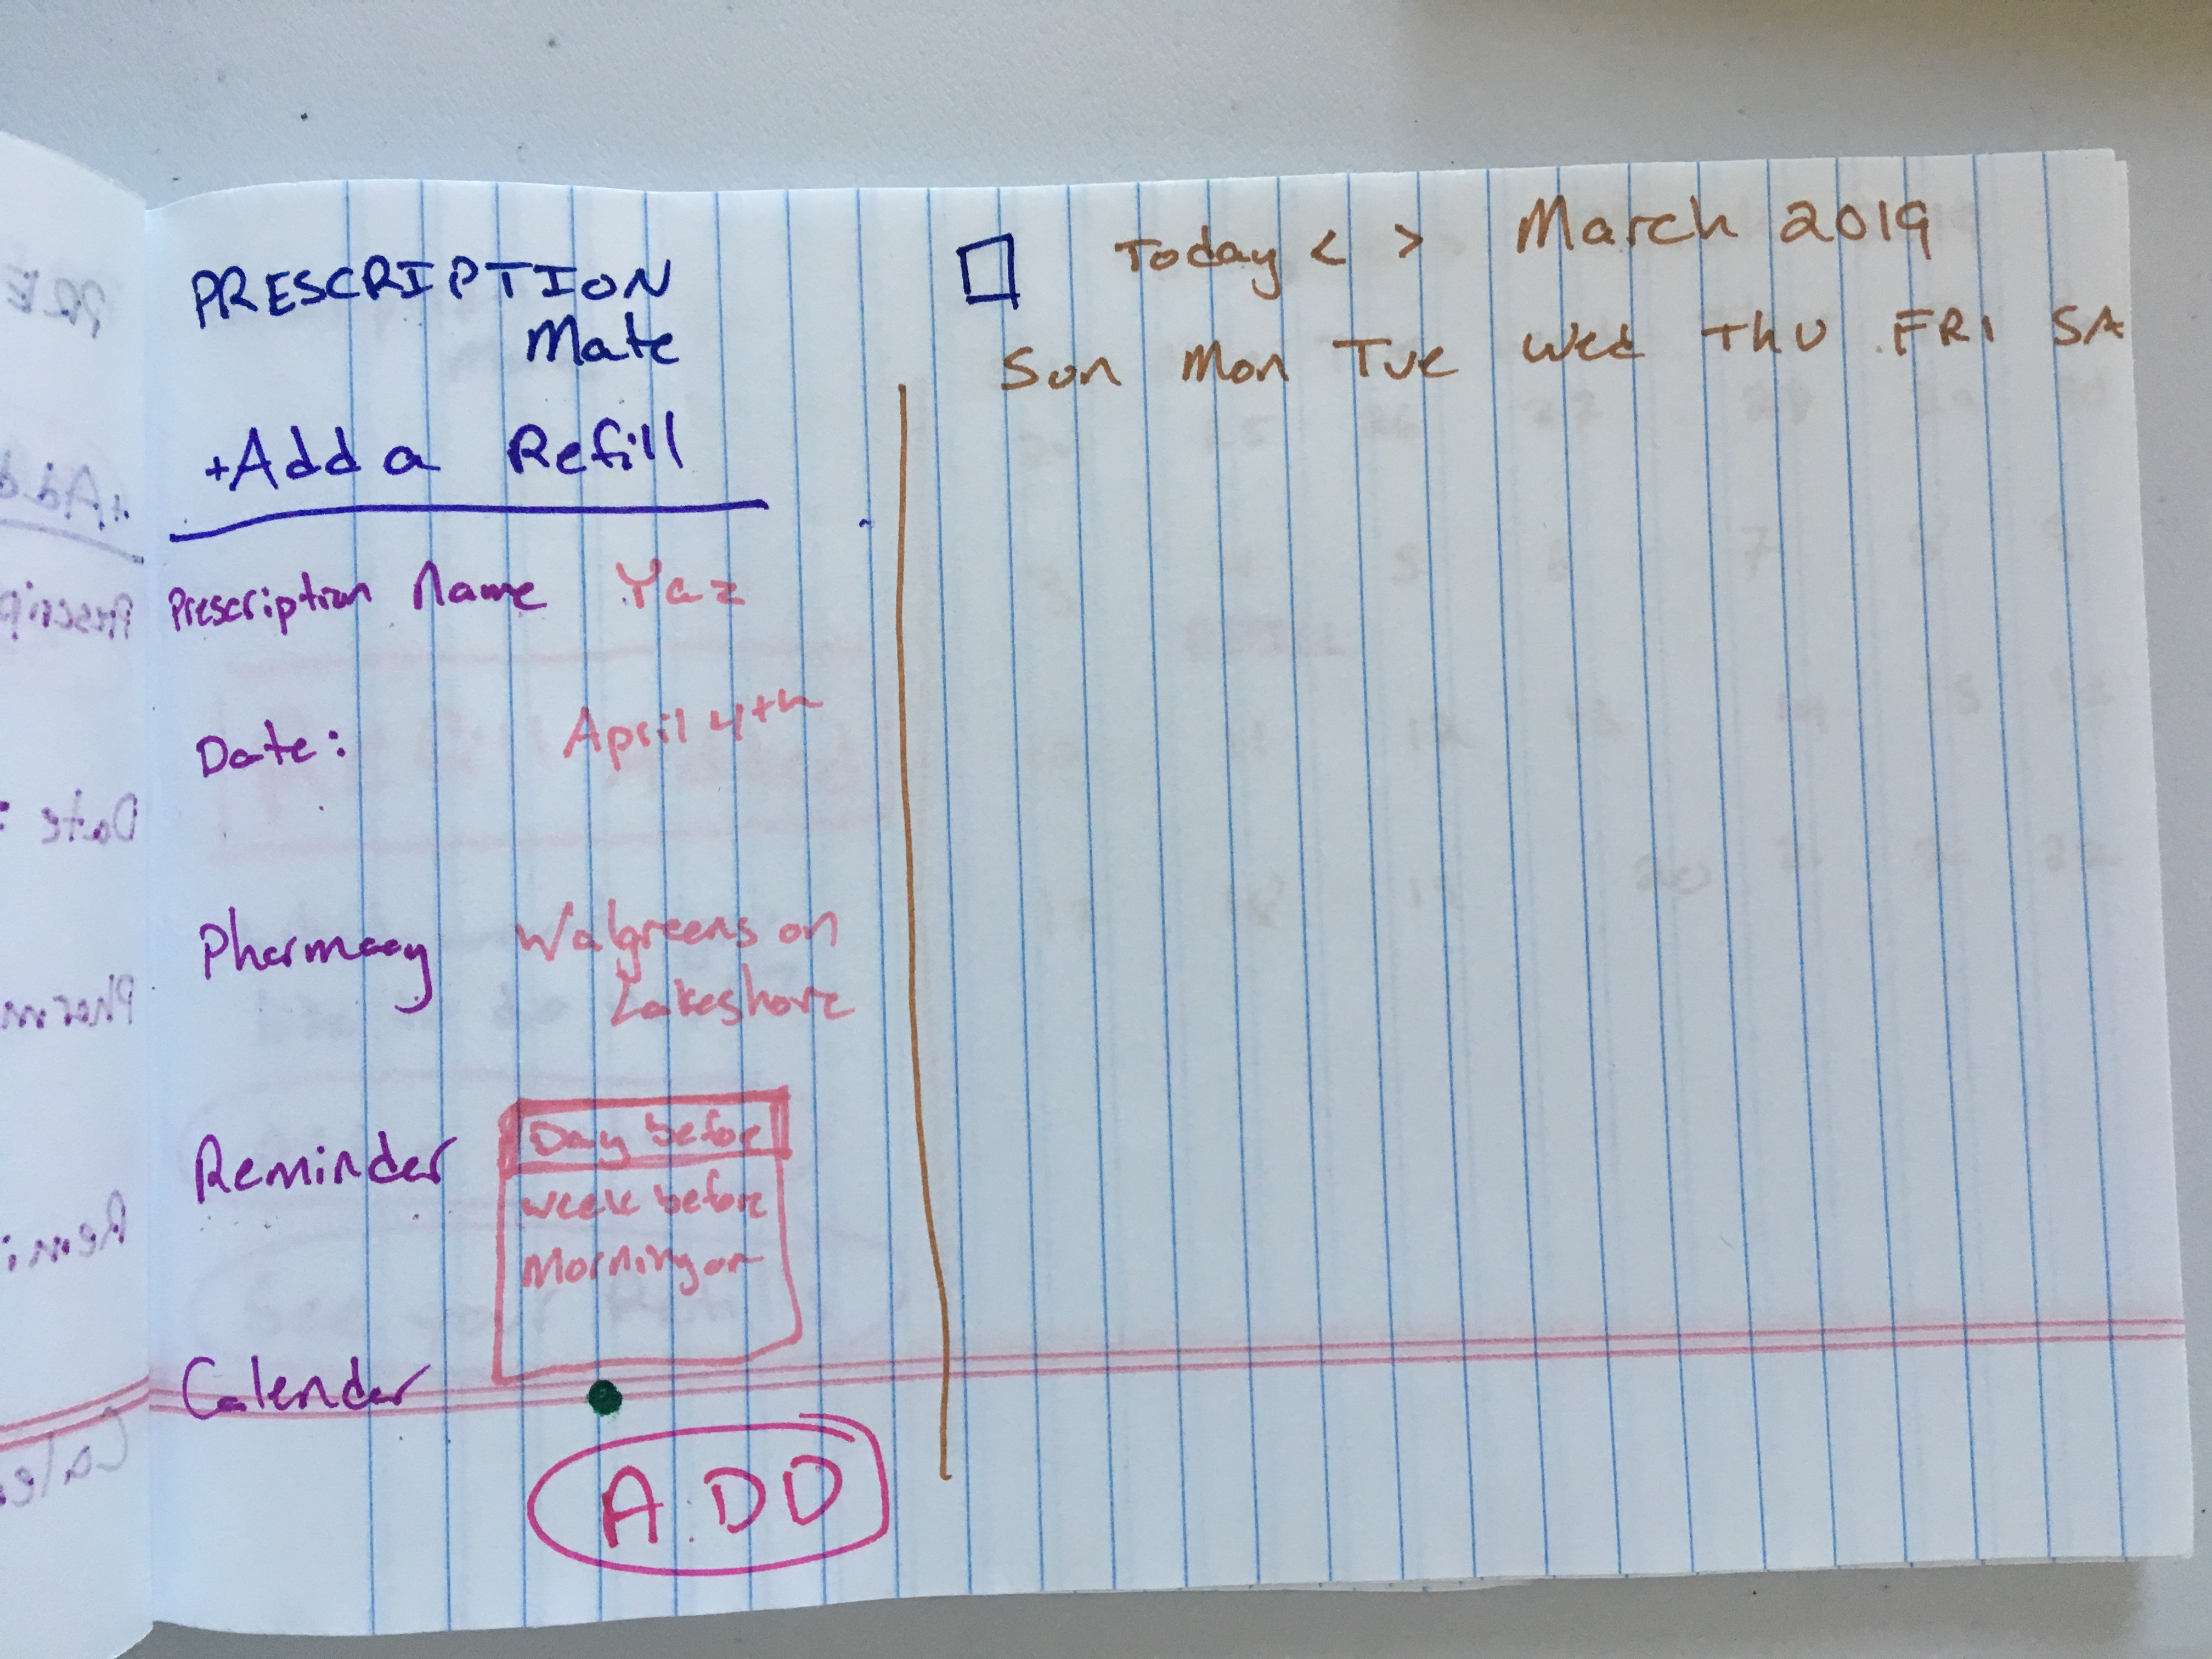 PRESCRIPTION
Mate
+Add a Refill
Prescription Name Yaz
Date: April 4th
Pharmacy Walgreens on
Lakeshore
Reminder Day before
week before
Morning on
Calender
ADD
Today < > March 2019
Sun Mon Tue Wed Thu FRI SA